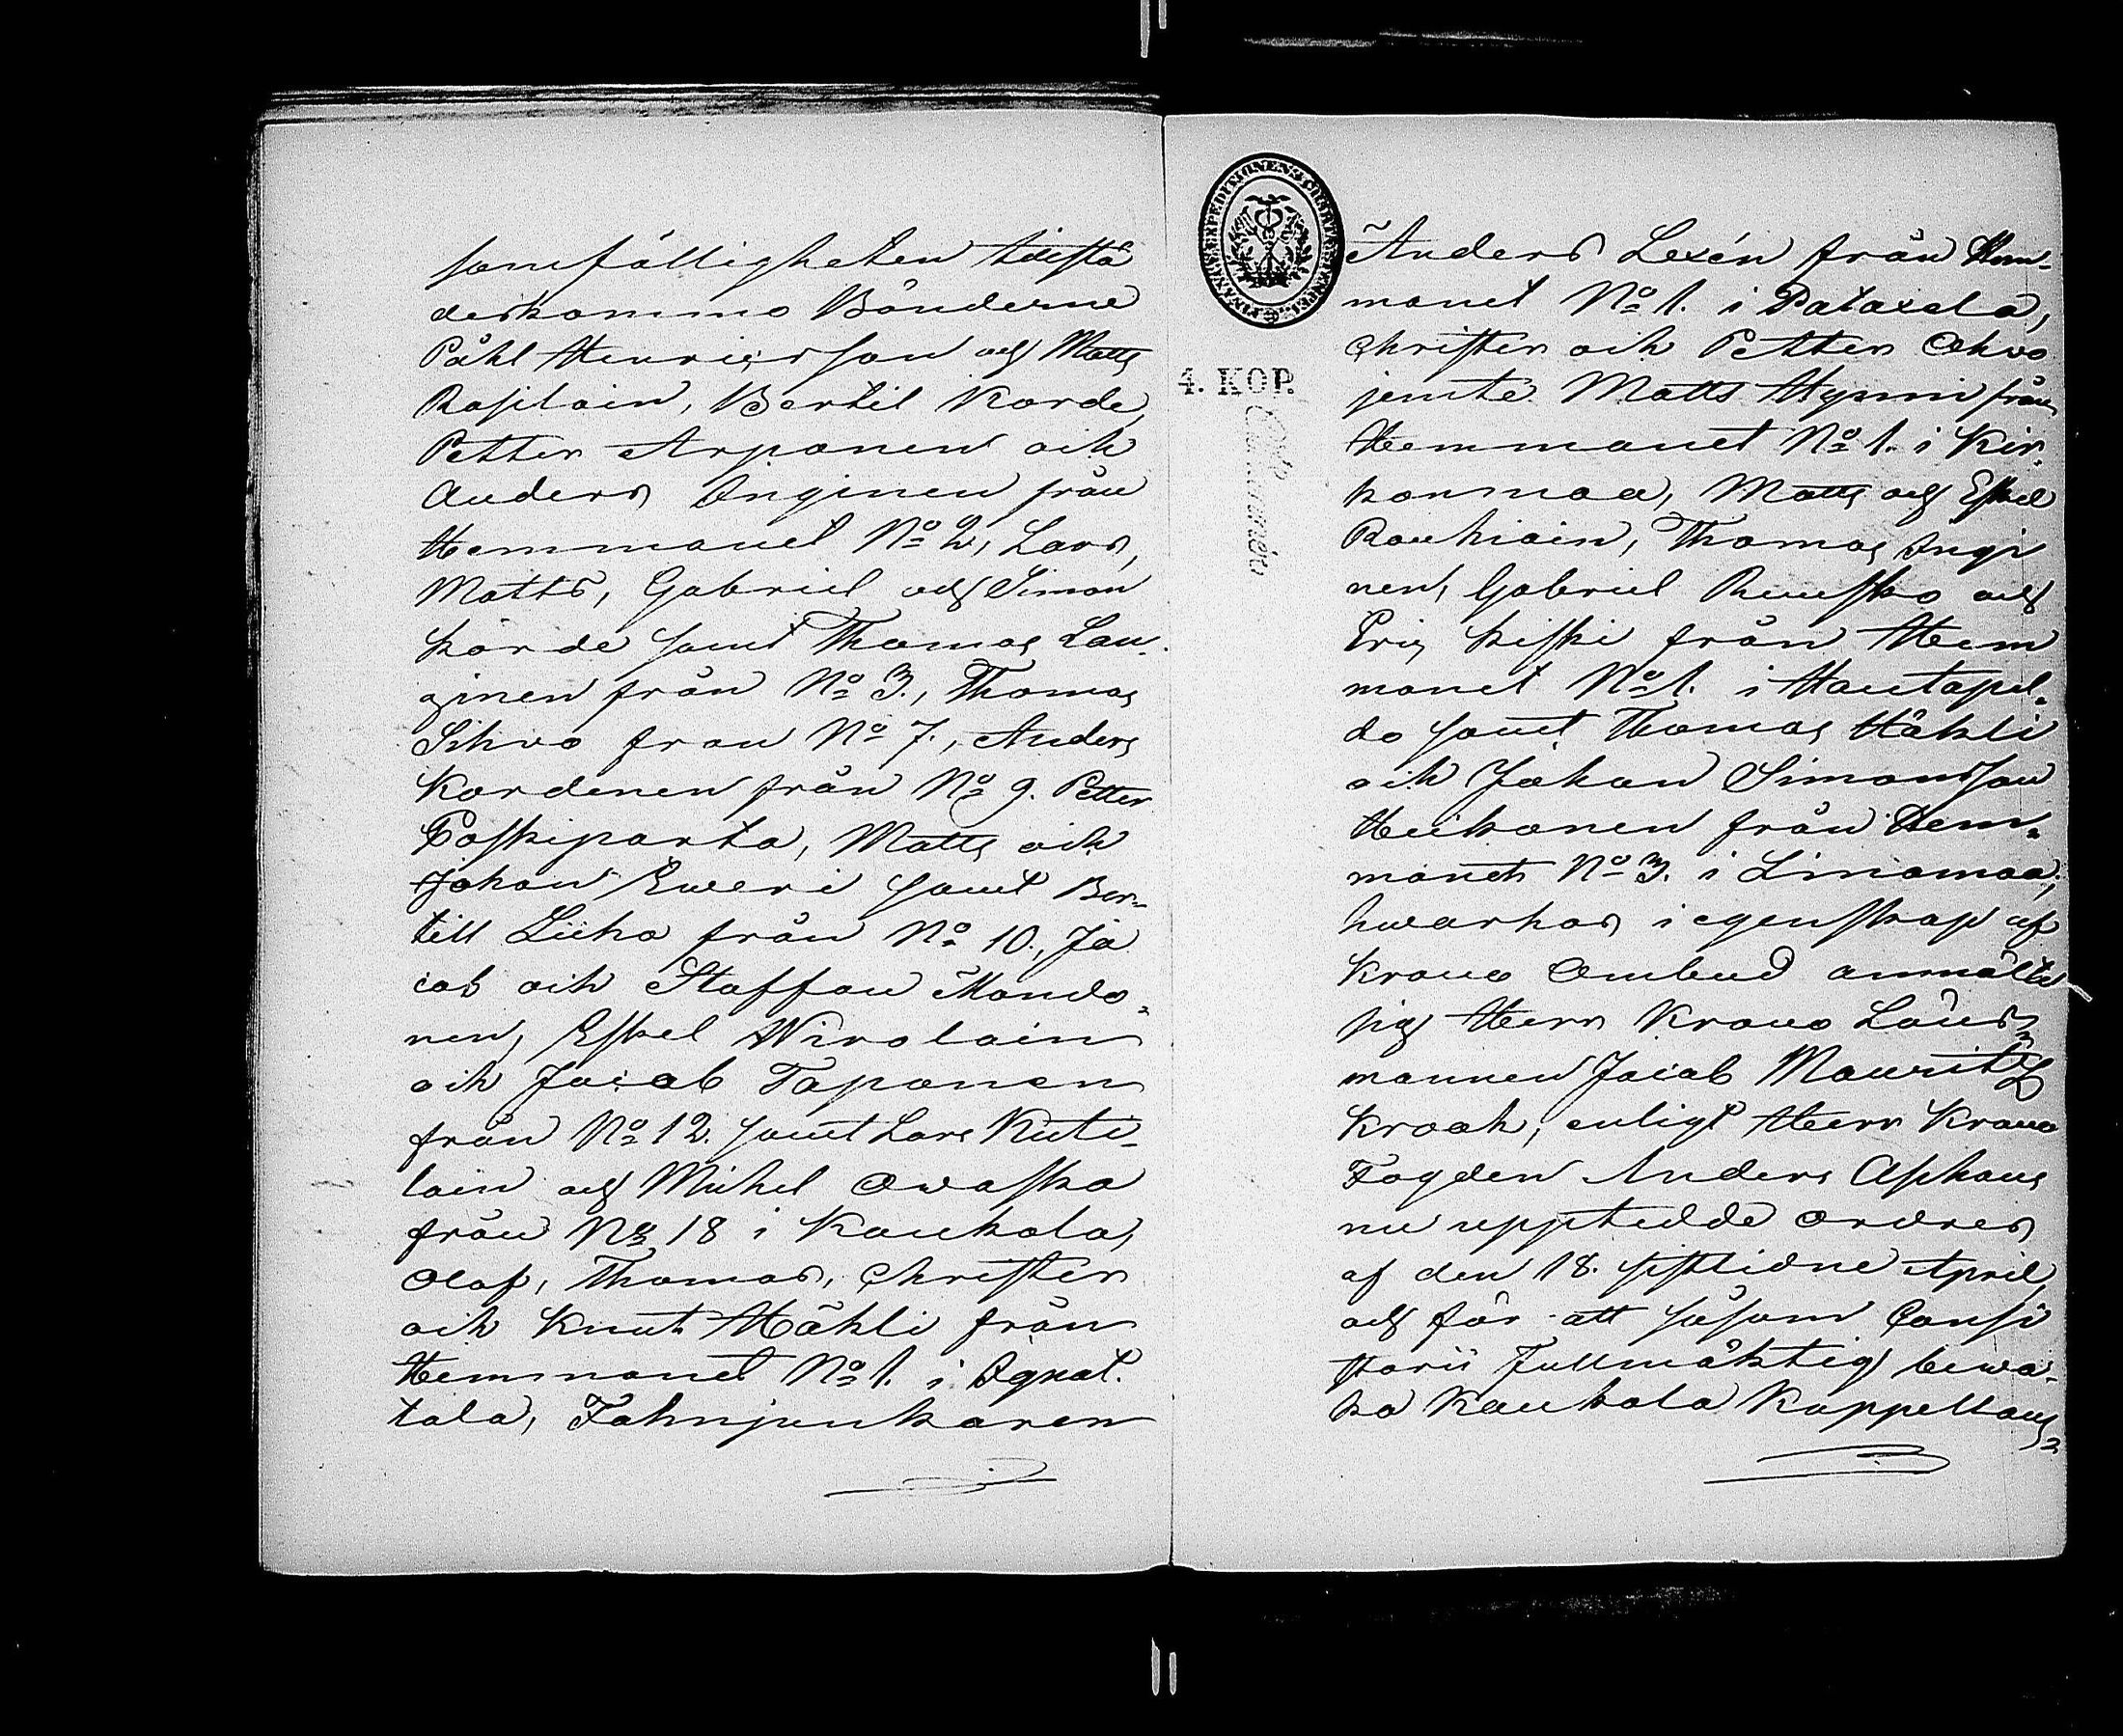 samfälligheten tillstä
deskommo Bönderne
Påhl Henricsson och Matts
Rasilain, Bertil Korde,
Petter Arponen och
Anders Inginen från
Hemmanet No 2, Lars,
Matts, Gabriel och Simon
Korde samt Thomas Lau-
ginen från No 3., Thomas
Sihvo fran No 7., Anders
Kordenen från No 9. Petter
Poskiparta, Matts och
Johan Eweri samt Ber-
till Liiha från No 10., Ja
cob och Staffan Mando-
nen, Eskel Wirolain
och Jacob Taponen
från No 12. samt Lars Kuti-
lain och Michel Owaska
från No 18 i Kaukola,
Olof, Thomas, Christer
och Knut Hähli från
Hemmanet No 1. i Ignat-
tala, Fahnjunkaren
FINANCE EXPEDITIONENS CHARTÆ STEMPEL
4. KOP.
Anders Lexén från Hem-
manet No 1. i Pataxala,
Christer och Petter Ohvo
jemte Matts Hynni från
Hemmanet No 1. i Kir-
konmaa, Matts och Eskel
Rauhiain, Thomas Ingi
nen, Gabriel Ruusko och
Eric Kiski från Hem
manet No 1. i Hautapel-
do samt Thomas Hähli
och Johan Simonsson
Heikonen från Hem-
manet No 3. i Linamaa;
hwarhos i egenskap af
Krono Ombud anmälte
sig Herr Krono Läns-
mannen Jacob Mauritz
Kraah, enligt Herr Krono
Fogden Anders Asphens
nu upptedde Ordres
af den 18. sistlidne April,
och för att såsom Consi
storii Fullmäktig bewa-
ka Kaukola Kappellans